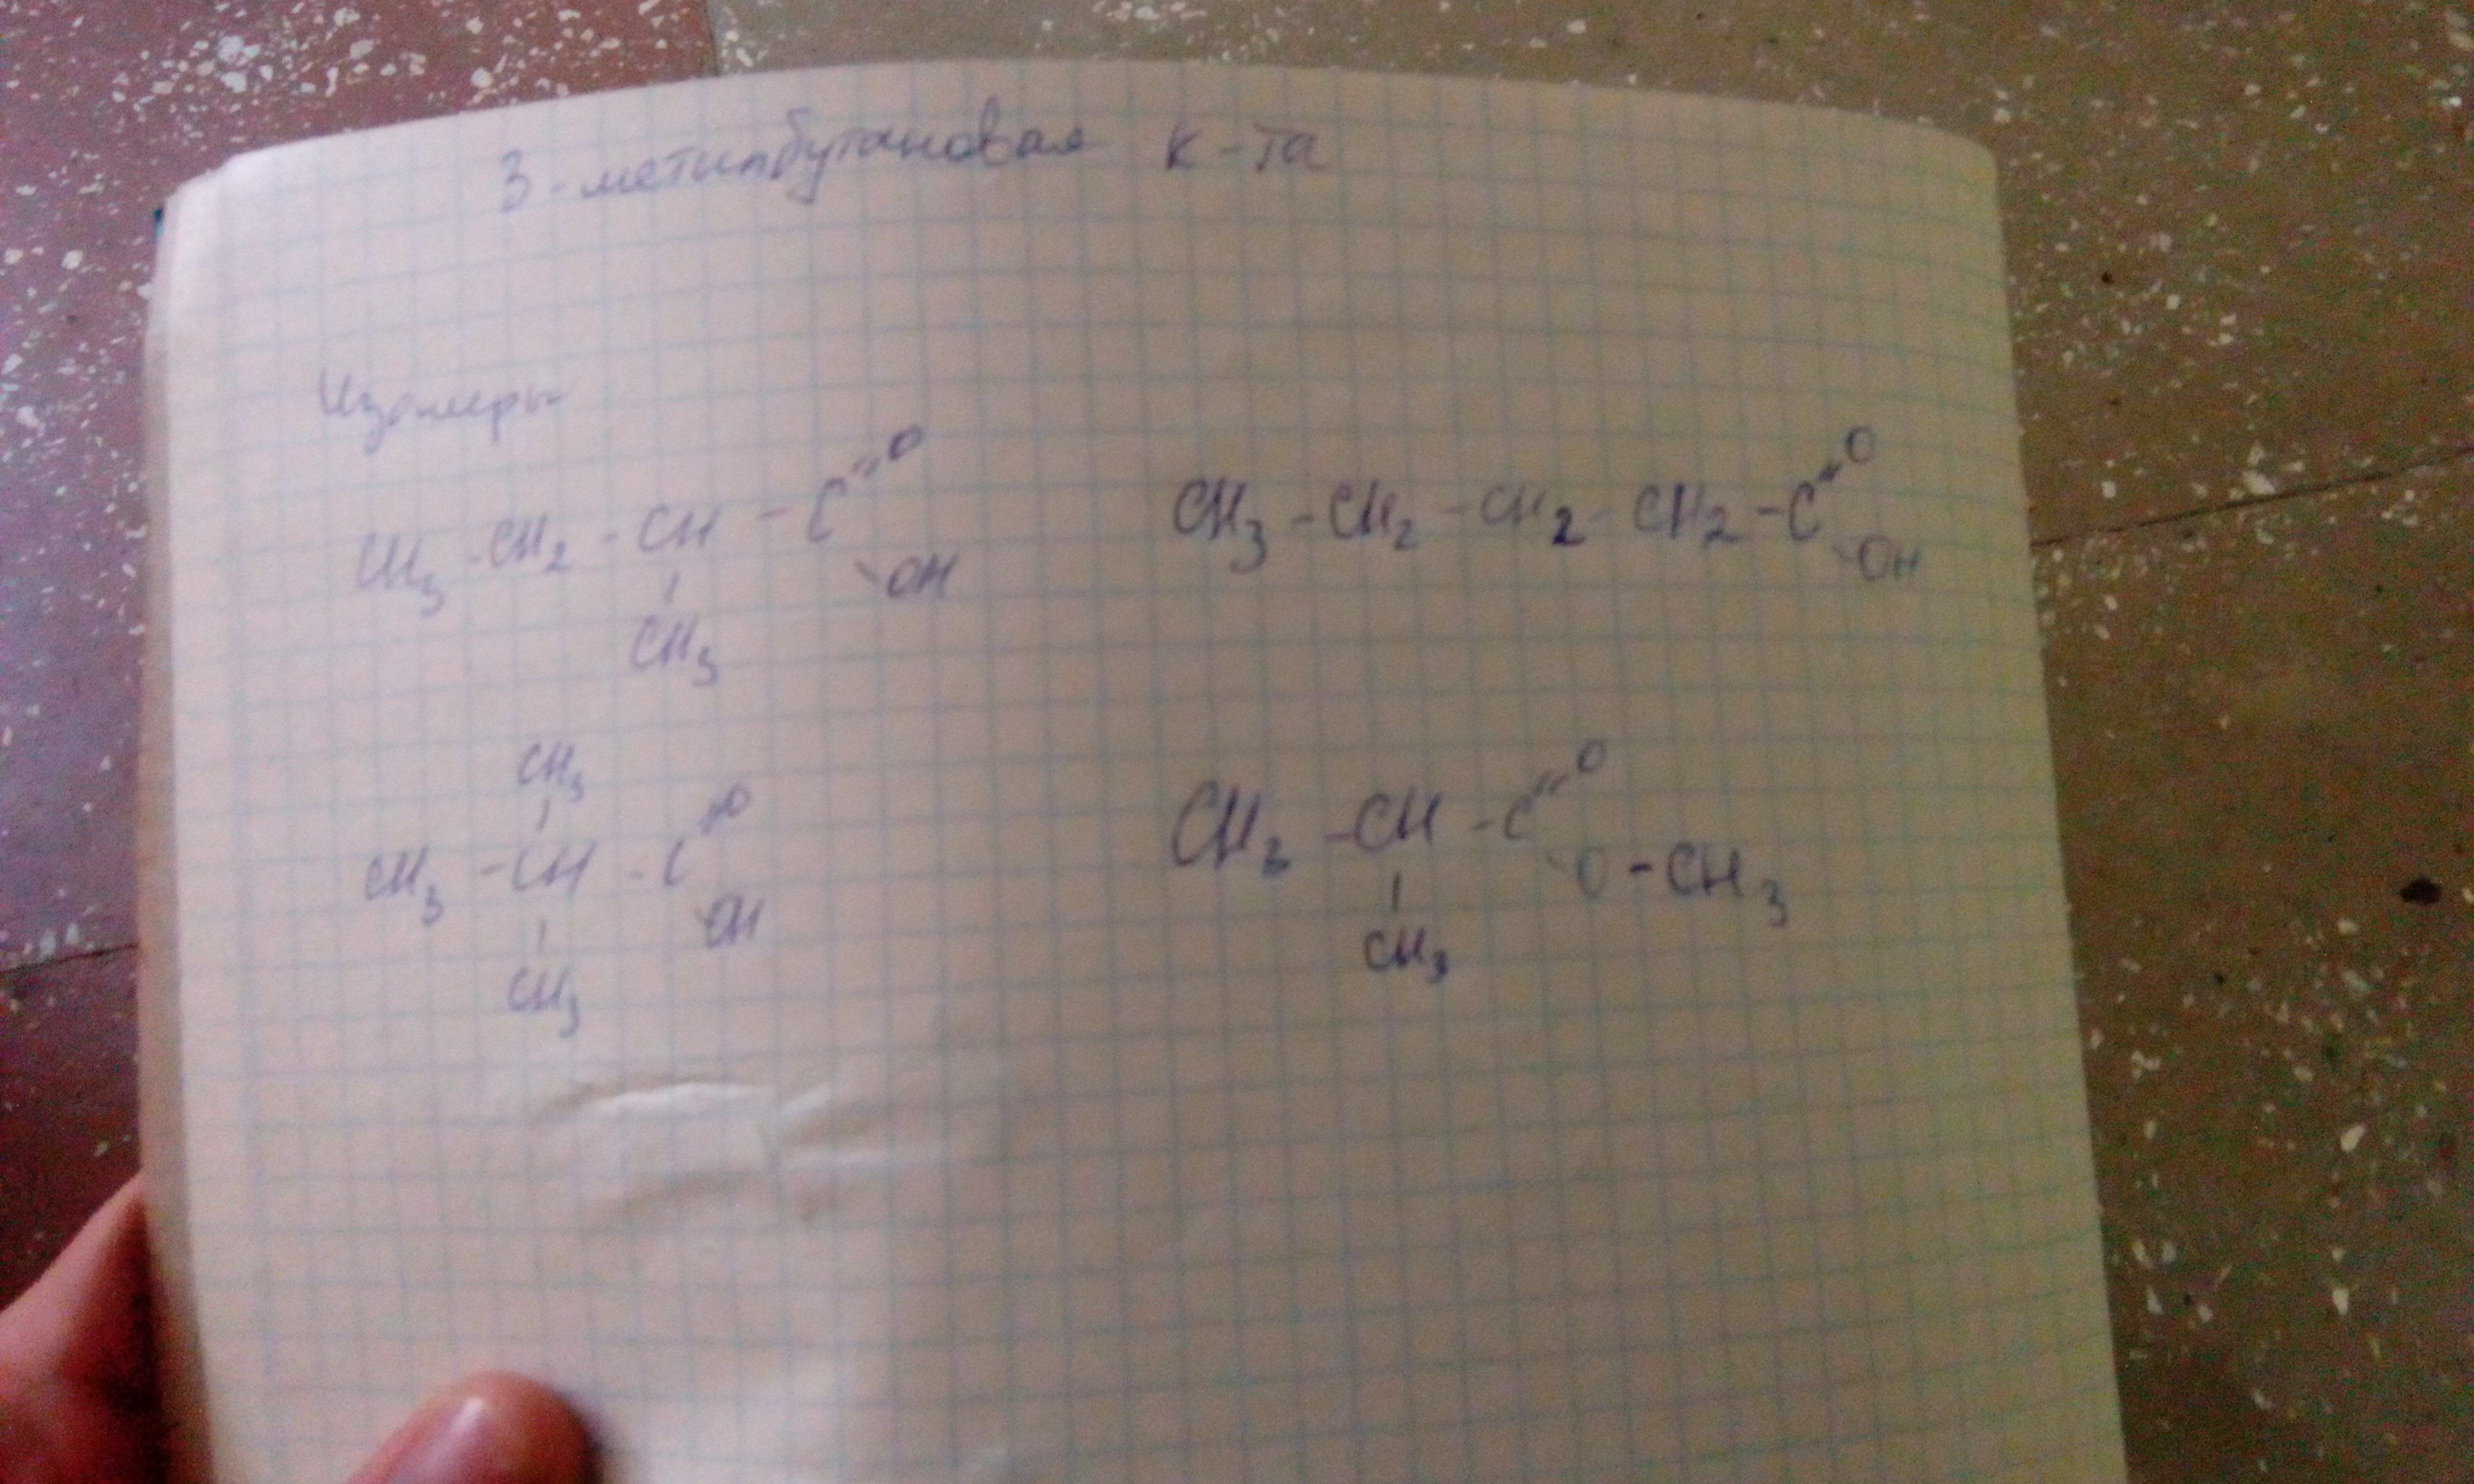 3-метилбутановая к-та
Изомеры
CH3-CH2-CH-C=O
OH
CH3
CH3-CH2-CH2-CH2-C=O
OH
CH3
CH3-CH-C=O
OH
CH3
CH3-CH-C=O
O-CH3
CH3